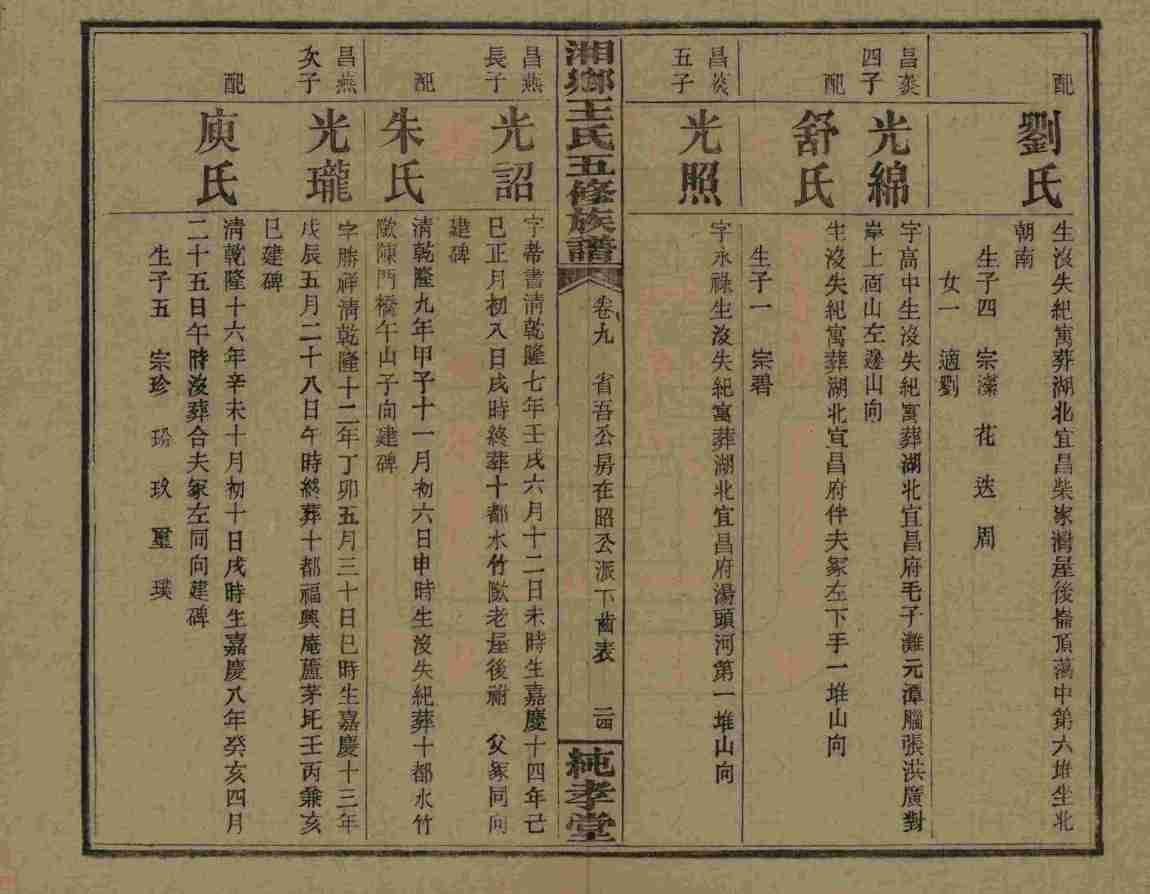 配
劉氏
生沒失紀寓葬湖北宜昌柴家灣屋後崙頂蕩中第六堆坐北
朝南
生子四 宗濚 花 迭 周
女一 適劉
昌炎
四子
光綿
字高中生沒失紀寓葬湖北宜昌府毛子灘元潭腦張洪廣對
岸上面山左邊山向
配
舒氏
生沒失紀寓葬湖北宜昌府伴夫冢左下手一堆山向
生子一 宗碧
昌炎
五子
光照
字永祿生沒失紀寓葬湖北宜昌府湯頭河第一堆山向
湘鄉王氏五修族譜
卷九 省吾公房在昭公派下齒表 二四
純孝堂
昌燕
長子
光詔
字希書清乾隆七年壬戌六月十二日未時生嘉慶十四年己
巳正月初八日戌時終葬十都水竹歐老屋後祔 父冢同向
建碑
配
朱氏
清乾隆九年甲子十一月初六日申時生沒失紀葬十都水竹
歐陳門橋午山子向建碑
昌燕
次子
光瓏
字勝祥清乾隆十二年丁卯五月三十日巳時生嘉慶十三年
戊辰五月二十八日午時終葬十都福興庵蘆茅坵壬丙兼亥
巳建碑
配
庾氏
清乾隆十六年辛未十月初十日戌時生嘉慶八年癸亥四月
二十五日午時沒葬合夫冢左同向建碑
生子五 宗珍 玢 玖 璽 璞